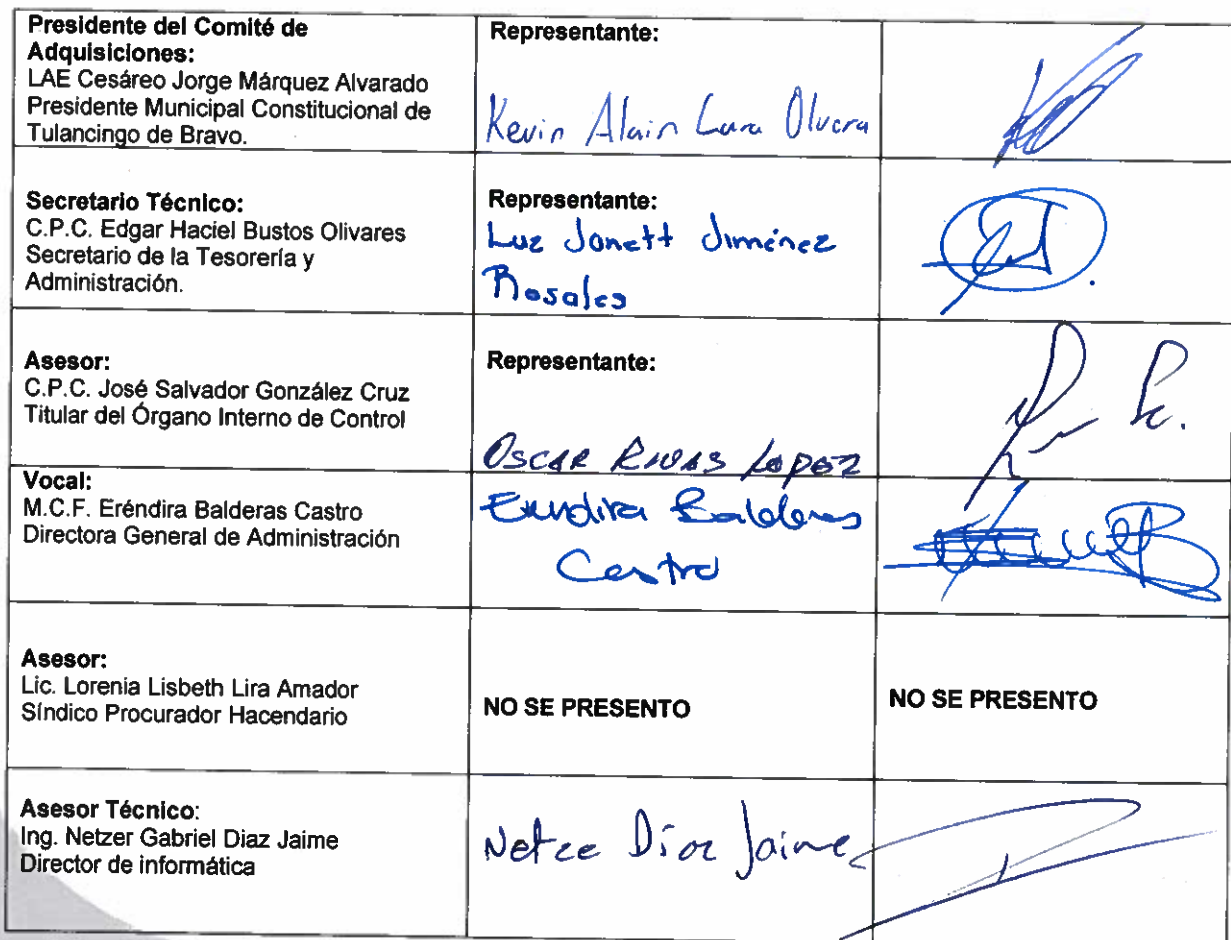 Presidente del Comité de
Adquisiciones:
LAE Cesáreo Jorge Márquez Alvarado
Presidente Municipal Constitucional de
Tulancingo de Bravo.
Representante:
Kevin Alain Lara Olvera
Secretario Técnico:
C.P.C. Edgar Haciel Bustos Olivares
Secretario de la Tesorería y
Administración.
Representante:
Luz Janett Jiménez
Rosales
Asesor:
C.P.C. José Salvador González Cruz
Titular del Órgano Interno de Control
Representante:
OSCAR RIVAS LOPEZ
Vocal:
M.C.F. Eréndira Balderas Castro
Directora General de Administración
Erendira Balderas
Castro
Asesor:
Lic. Lorenia Lisbeth Lira Amador
Síndico Procurador Hacendario
NO SE PRESENTO
NO SE PRESENTO
Asesor Técnico:
Ing. Netzer Gabriel Diaz Jaime
Director de informática
Netze Díaz Jaime